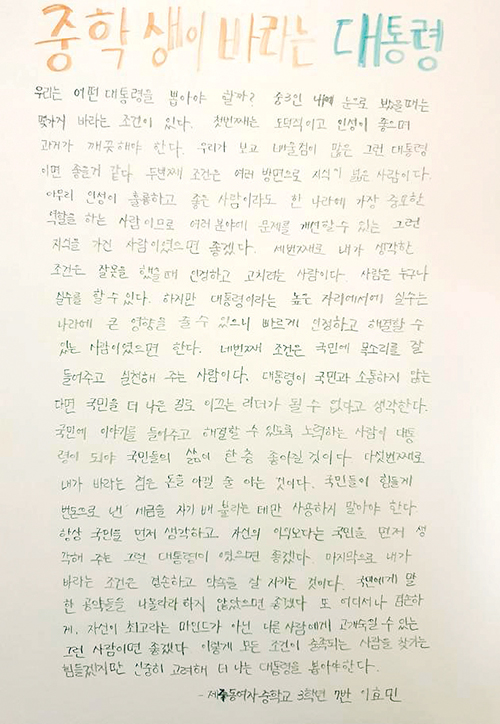 중학생이 바라는 대통령
우리는 어떤 대통령을 뽑아야 할까? 중3인 나에 눈으로 봤을때는
몇가지 바라는 조건이 있다. 첫번째는 도덕적이고 인성이 좋으며
과거가 깨끗해야 한다. 우리가 보고 배울점이 많은 그런 대통령
이면 좋을거 같다. 두번째 조건은 여러 방면으로 지식이 넓은 사람이다.
아무리 인성이 훌륭하고 좋은 사람이라도 한 나라에 가장 중요한
역할을 하는 사람이므로 여러 분야에 문제를 개선할 수 있는 그런
지식을 가진 사람이였으면 좋겠다. 세번째로 내가 생각한
조건은 잘못을 했을때 인정하고 고치려는 사람이다. 사람은 누구나
실수를 할 수 있다. 하지만 대통령이라는 높은 자리에서에 실수는
나라에 큰 영향을 줄 수 있으니 빠르게 인정하고 해결할 수
있는 사람이였으면 한다. 네번째 조건은 국민에 목소리를 잘
들어주고 실천해 주는 사람이다. 대통령이 국민과 소통하지 않는
다면 국민을 더 나은 길로 이끄는 리더가 될 수 없다고 생각한다.
국민에 이야기를 들어주고 해결할 수 있도록 노력하는 사람이 대통
령이 되야 국민들의 삶이 한층 좋아질 것이다. 다섯번째로
내가 바라는 점은 돈을 아낄 줄 아는 것이다. 국민들이 힘들게
번돈으로 낸 세금을 자기 배 불리는 데만 사용하지 말아야 한다
항상 국민을 먼저 생각하고 자신의 이익보다는 국민을 먼저 생
각해 주는 그런 대통령이 였으면 좋겠다. 마지막으로 내가
바라는 조건은 겸손하고 약속을 잘 지키는 것이다. 국민에게 말
한 공약들을 나몰라라 하지 않았으면 좋겠다 또 어디서나 겸손하
게, 자신이 최고라는 마인드가 아닌 다른 사람에게 고개숙일 수 있는
그런 사람이면 좋겠다 이렇게 모든 조건이 충족되는 사람을 찾기는
힘들겠지만 신중히 고려해 더 나는 대통령을 뽑아야한다.
- 제주동여자중학교 3학년 7반 이효민